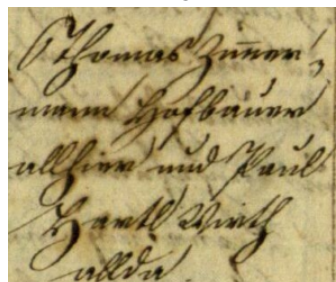 Thomas Zim̅er,
mann Hofbauer
allhier und Paul
Hartl Wirth
allda